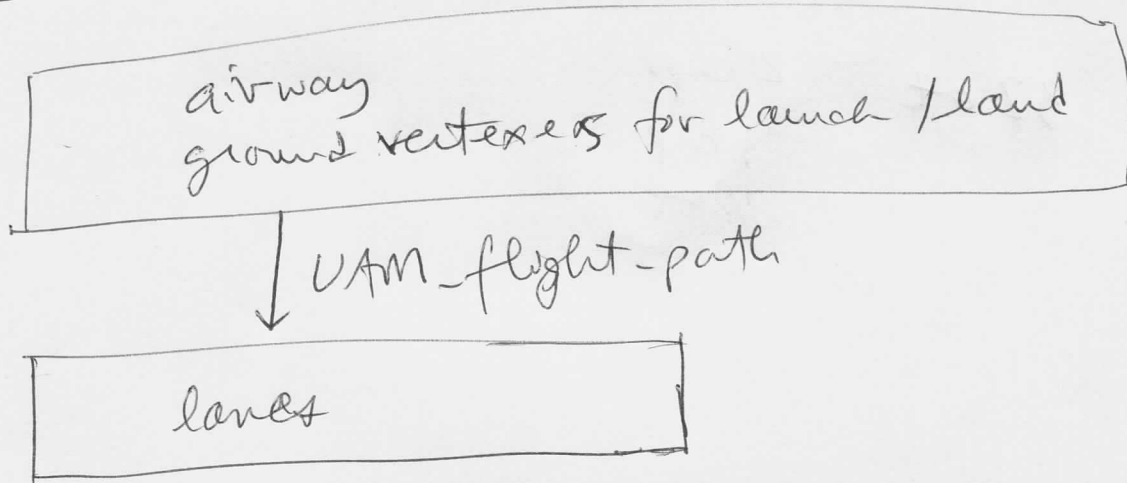 airway
ground vertexes for launch / land
UAM_flight-path
lanes